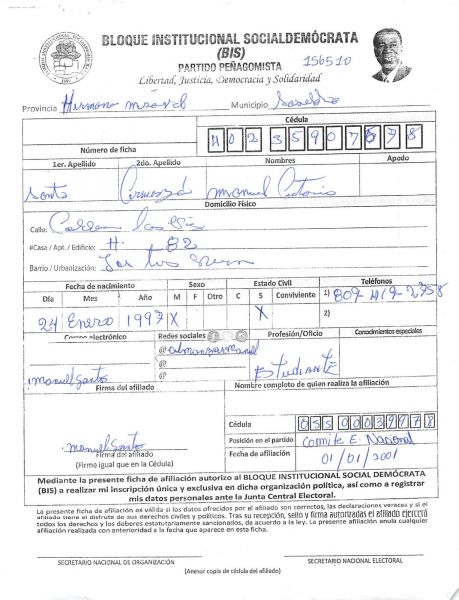 BLOQUE INSTITUCIONAL SOCIALDEMÓCRATA
(BIS)
PARTIDO PEÑAGOMISTA
156510
Libertad, Justicia, Democracia y Solidaridad
Provincia Municipio
Cédula
Número de ficha 40235907678
1er. Apellido 2do. Apellido Nombres Apodo
Santo Manuel Antonio
Domicilio Físico
Calle:
#Casa / Apt. / Edificio: #. 82
Barrio / Urbanización:
Fecha de nacimiento Sexo Estado Civil Teléfonos
Día Mes Año M F Otro C S Conviviente 1) 809-419-2358
24 Enero 1997 X X 2)
Correo electrónico Redes sociales Profesión/Oficio Conocimientos especiales
@almanzarmanuel
@ Estudiante
@
Manuel Santos
Firma del afiliado Nombre completo de quien realiza la afiliación
Cédula 05500039978
Manuel Santos
Firma del afiliado
(Firme igual que en la Cédula)
Posición en el partido Comite E. Nacional
Fecha de afiliación 01/01/2001
Mediante la presente ficha de afiliación autorizo al BLOQUE INSTITUCIONAL SOCIAL DEMÓCRATA
(BIS) a realizar mi inscripción única y exclusiva en dicha organización política, así como a registrar
mis datos personales ante la Junta Central Electoral.
La presente ficha de afiliación es válida si los datos ofrecidos por el afiliado son correctos, las declaraciones veraces y si el
afiliado tiene el disfrute de sus derechos civiles y políticos. Tras su recepción, sello y firma autorizadas el afiliado ejercerá
todos los derechos y los deberes estatutariamente sancionados, de acuerdo a la ley. La presente afiliación anula cualquier
afiliación realizada con anterioridad a la fecha que aparece en esta ficha.
SECRETARIO NACIONAL DE ORGANIZACIÓN SECRETARIO NACIONAL ELECTORAL
(Anexar copia de cédula del afiliado)